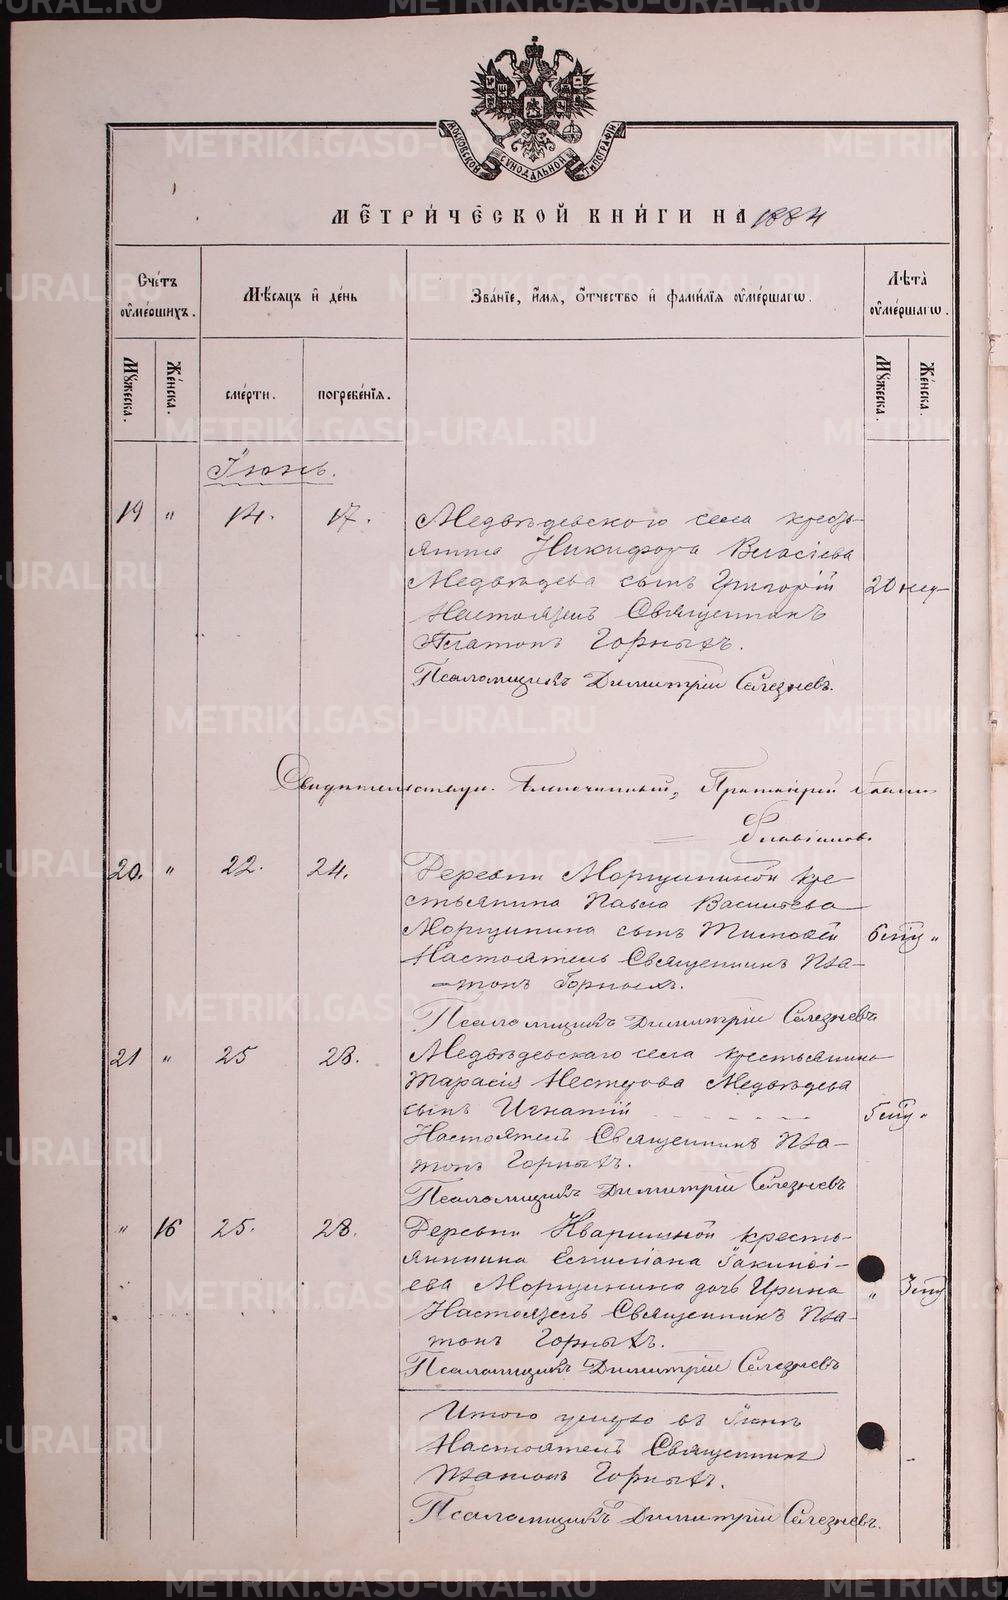 МОСКОВСКОЙ СѴНОДАЛЬНОЙ ТИПОГРАФІИ
МЕТРИЧЕСКОЙ КНИГИ НА 1884
Счетъ оумершихъ.
Мѣсяцъ и день
Званіе, имя, отчество и фамилія оумершагѡ.
Лѣта оумершагѡ.
Мужеска.
Женска.
смерти.
погребенія.
Мужеска.
Женска.
Іюнь.
19 " 14. 17. Медвѣдевскаго села кресть-
янина Никифора Власіева
Медвѣдева сынъ Григорій 20 нед
Настоятель Священникъ
Платонъ Горныхъ.
Псаломщикъ Димитрій Селезневъ.
Свидѣтельствую. Благочинный, Протоіерей
20. " 22. 24. Деревни Морщининой кре-
стьянина Павла Васильева
Морщинина сынъ Тимофей 6 лѣтъ "
Настоятель Священникъ Пла-
тонъ Горныхъ.
Псаломщикъ Димитрій Селезневъ
21 " 25 28. Медвѣдевскаго села крестьянина
Тарасія Нестерова Медвѣдева
сынъ Игнатій 5 лѣтъ "
Настоятель Священникъ Пла-
тонъ Горныхъ.
Псаломщикъ Димитрій Селезневъ
" 16 25. 28. Деревни Квашниной кресть-
янина Емиліана Іакинѳі-
ева Морщинина дочь Ирина " 3 лѣтъ
Настоятель Священникъ Пла-
тонъ Горныхъ.
Псаломщикъ Димитрій Селезневъ
Итого умерло въ Іюнѣ
Настоятель Священникъ
Платонъ Горныхъ.
Псаломщикъ Димитрій Селезневъ.
METRIKI.GASO-URAL.RU